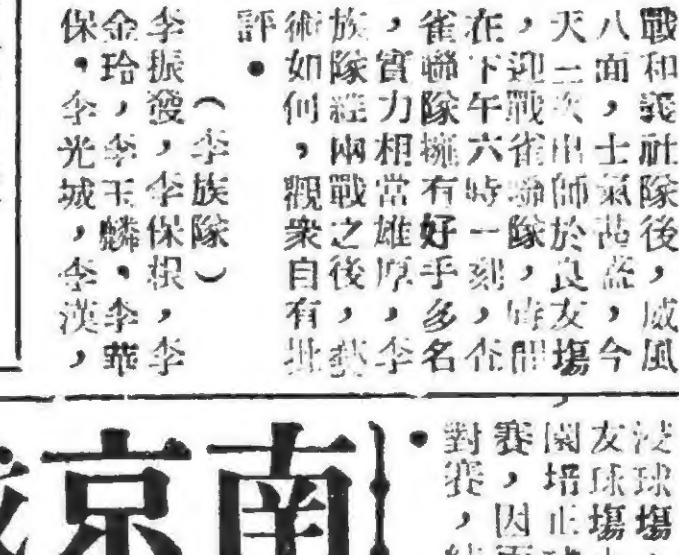 戰和義社隊後，威風
八面，士氣益盛，今
天二次出師於良友塲
，迎戰雀聯隊，時間
在下午六時一刻，
雀聯隊擁有好手多名
，實力相當雄厚，李
族隊經兩戰之後，
術如何，觀衆自有批
評。
（李族隊）
李振發，李保根，李
金玲，李玉麟，李華
保，李光城，李漢，
球塲
友球塲
園培正
賽，因
對賽，
。
南京